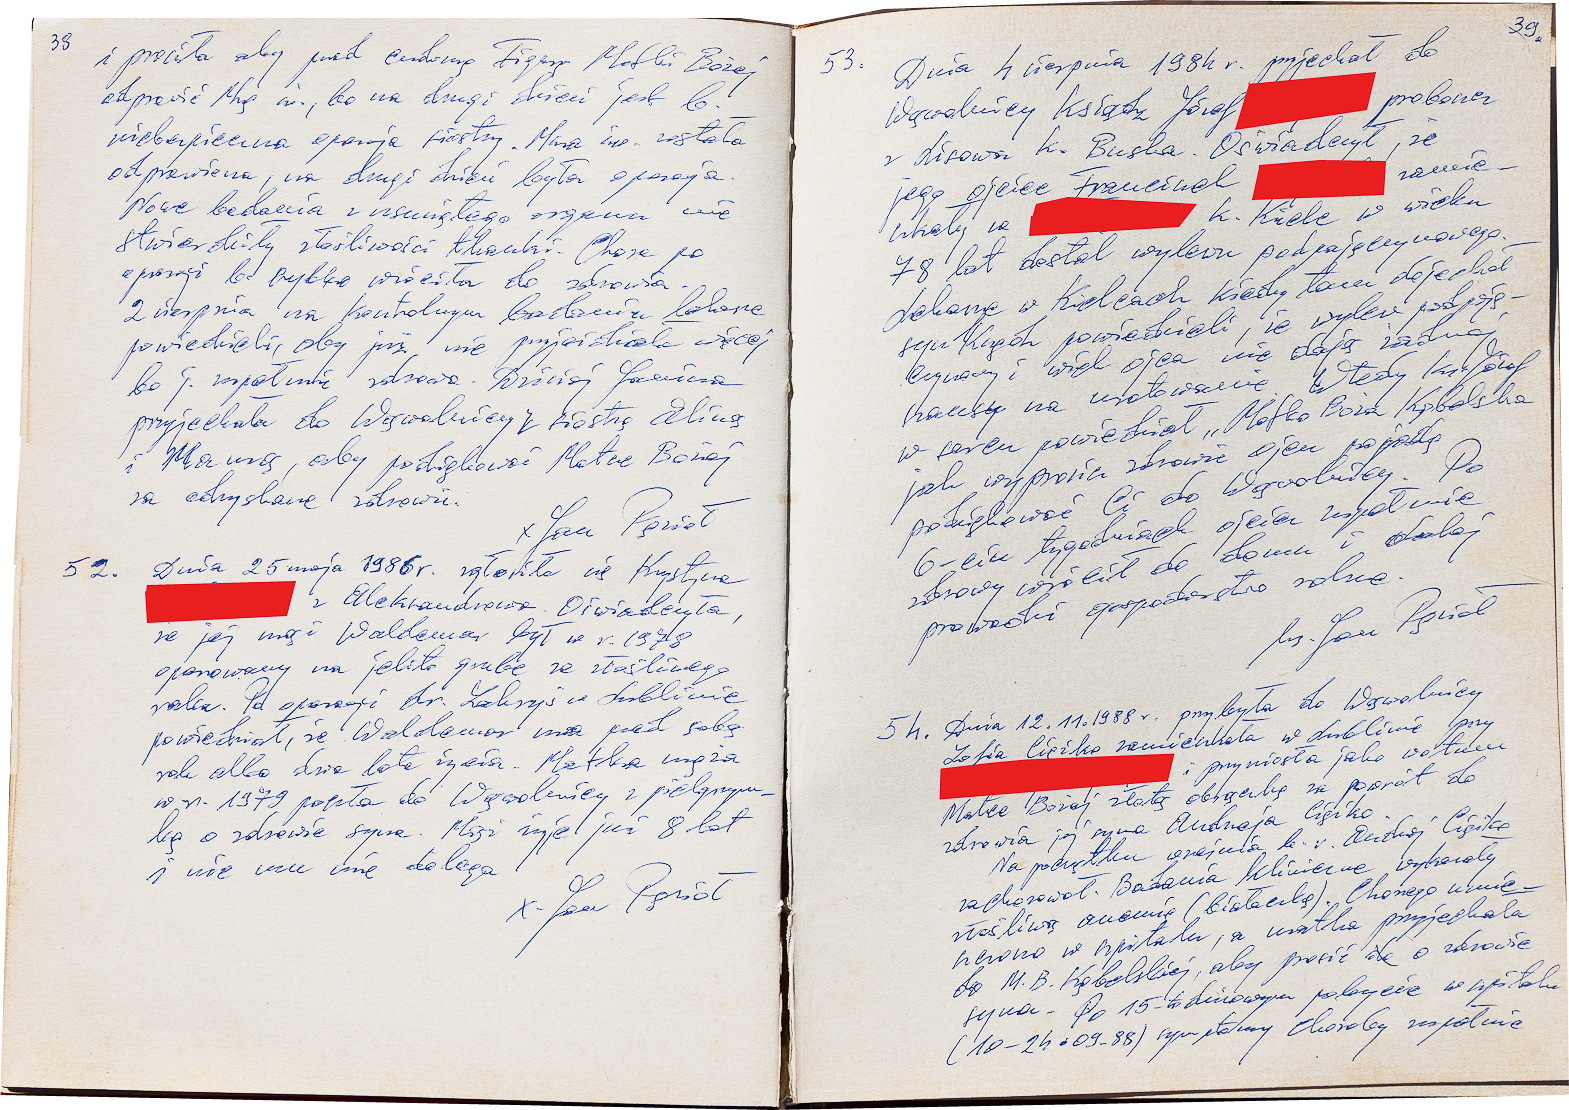 38
i prosiła aby przed cudowną Figurą Matki Bożej
odprawić Mszę św., bo na drugi dzień jest b.
niebezpieczna operacja siostry. Msza św. została
odprawiona, na drugi dzień była operacja.
Nowe badania z usuniętego organu nie
stwierdziły złośliwości tkanki. Chora po
operacji b. szybko wróciła do zdrowia.
2 sierpnia na kontrolnym badaniu lekarze
powiedzieli, aby już nie przyjeżdżała więcej
bo j. zupełnie zdrowa. Dzisiaj Janina
przyjechała do Wąwolnicy z siostrą Aliną
i Mamą, aby podziękować Matce Bożej
za odzyskane zdrowie.
x Jan Pęzioł
52. Dnia 25 maja 1986 r. zgłosiła się Krystyna
z Aleksandrowa. Oświadczyła,
że jej mąż Waldemar był w r. 1978
operowany na jelito grube ze złośliwego
raka. Po operacji dr. w Lublinie
powiedział, że Waldemar ma przed sobą
rok albo dwa lata życia. Matka męża
w r. 1979 poszła do Wąwolnicy z pielgrzym-
ką o zdrowie syna. Mąż żyje już 8 lat
i nic mu nie dolega
x. Jan Pęzioł
39
53. Dnia 4 sierpnia 1984 r. przyjechał do
Wąwolnicy Ksiądz Józef proboszcz
z k. Buska. Oświadczył, że
jego ojciec Franciszek zamie-
szkały w k. Kielc w wieku
78 lat dostał wylewu podpajęczynowego.
Lekarze w Kielcach kiedy tam dojechał
syn Ksiądz powiedzieli, że wylew podpaję-
czynowy i wiek ojca nie dają żadnej
szansy na uratowanie. Wtedy Ks. Józef
w sercu powiedział „Matko Boża Kębelska
jak wyprosisz zdrowie ojcu pojadę
podziękować Ci do Wąwolnicy. Po
6-ciu tygodniach ojciec zupełnie
zdrowy wrócił do domu i dalej
prowadzi gospodarstwo rolne.
ks. Jan Pęzioł
54. Dnia 12.11.1988 r. przybyła do Wąwolnicy
Zofia Ciężka zamieszkała w Lublinie przy
i przyniosła jako wotum
Matce Bożej złotą obrączkę za powrót do
zdrowia jej syna Andrzeja Ciężko.
Na początku września b. r. Andrzej Ciężko
zachorował. Badania kliniczne wykazały
złośliwą anemię (białaczkę). Chorego umie-
szczono w szpitalu, a matka przyjechała
do M. B. Kębelskiej, aby prosić Ją o zdrowie
syna. Po 15-to dniowym pobycie w szpitalu
(10-24.09-88) symptomy choroby zupełnie